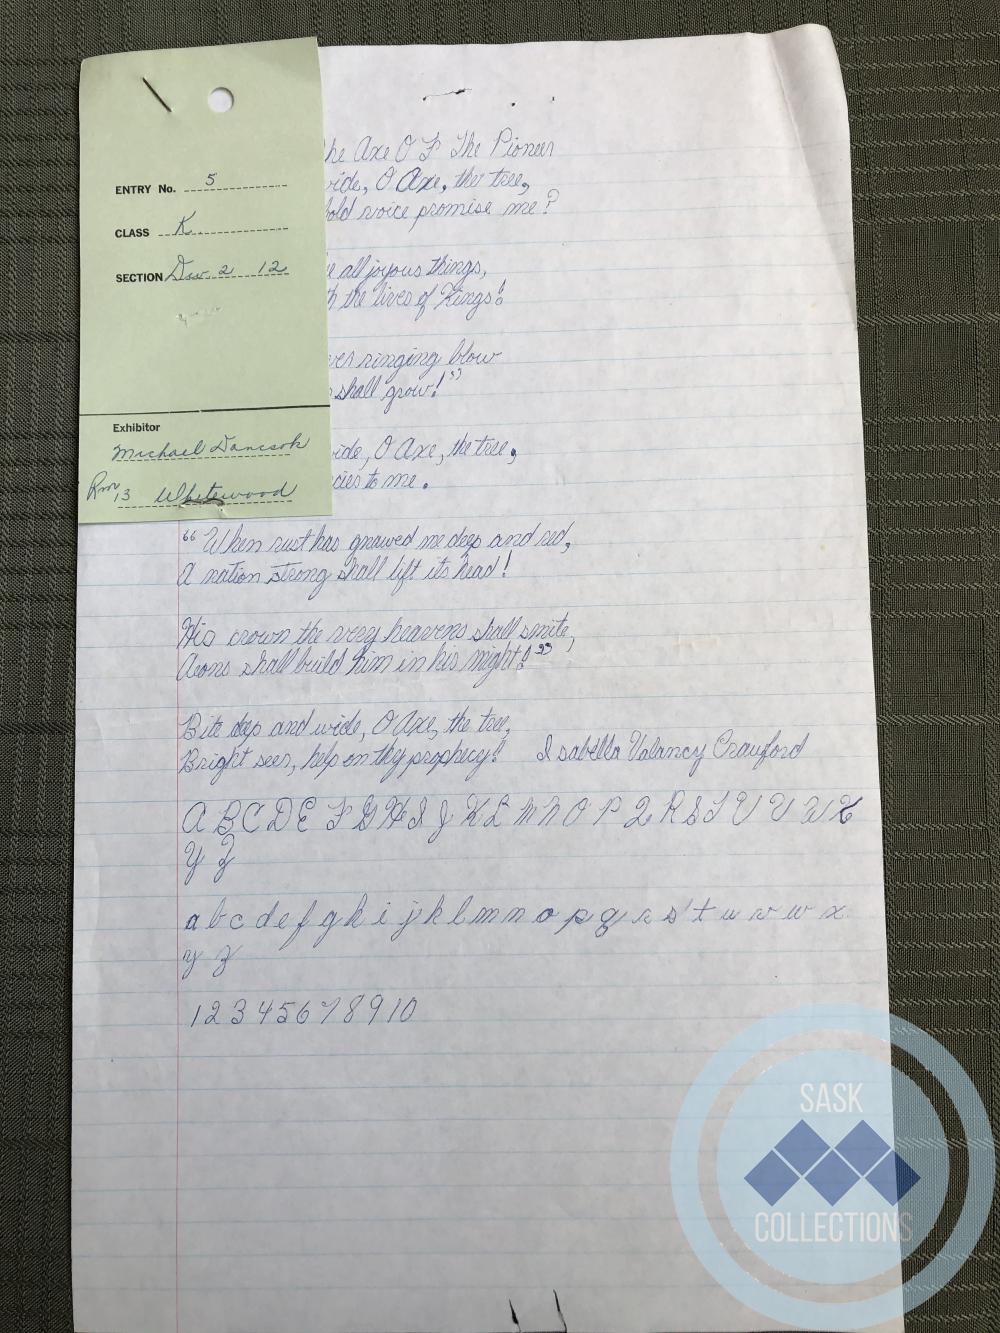 ENTRY No. 5
CLASS K.
SECTION Div. 2 12
Exhibitor
Michael Dancsok
Rm 13 Whitewood
he Axe OF The Pioneer
ride, O Axe, the tree,
bold voice promise me?
all joyous things,
h the lives of Kings!
ver ringing blow
shall grow!"
ide, O Axe, the tree,
cies to me.
"When rust has gnawed me deep and red,
A nation strong shall lift its head!
His crown the very heavens shall smite,
Aeons shall build him in his might!"
Bite deep and wide, O Axe, the tree,
Bright seer, help on thy prophecy! Isabella Valancy Crawford
A B C D E F G H I J K L M N O P Q R S T U V W X
Y Z
a b c d e f g h i j k l m n o p q r s t u v w x
y z
1 2 3 4 5 6 7 8 9 10
SASK
COLLECTIONS